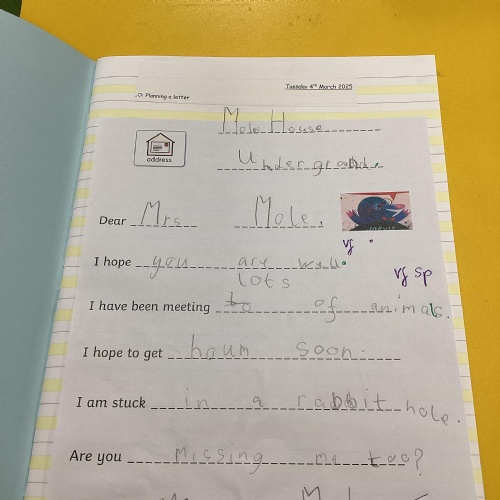 Tuesday 4th March 2025
LO: Planning a letter
Mole House
address
Undergraound
Dear Mrs Mole.
vf
I hope you are well.
lots
vf sp
I have been meeting to of animals.
I hope to get houm soon.
I am stuck in a rabbit hole.
Are you missing me too?